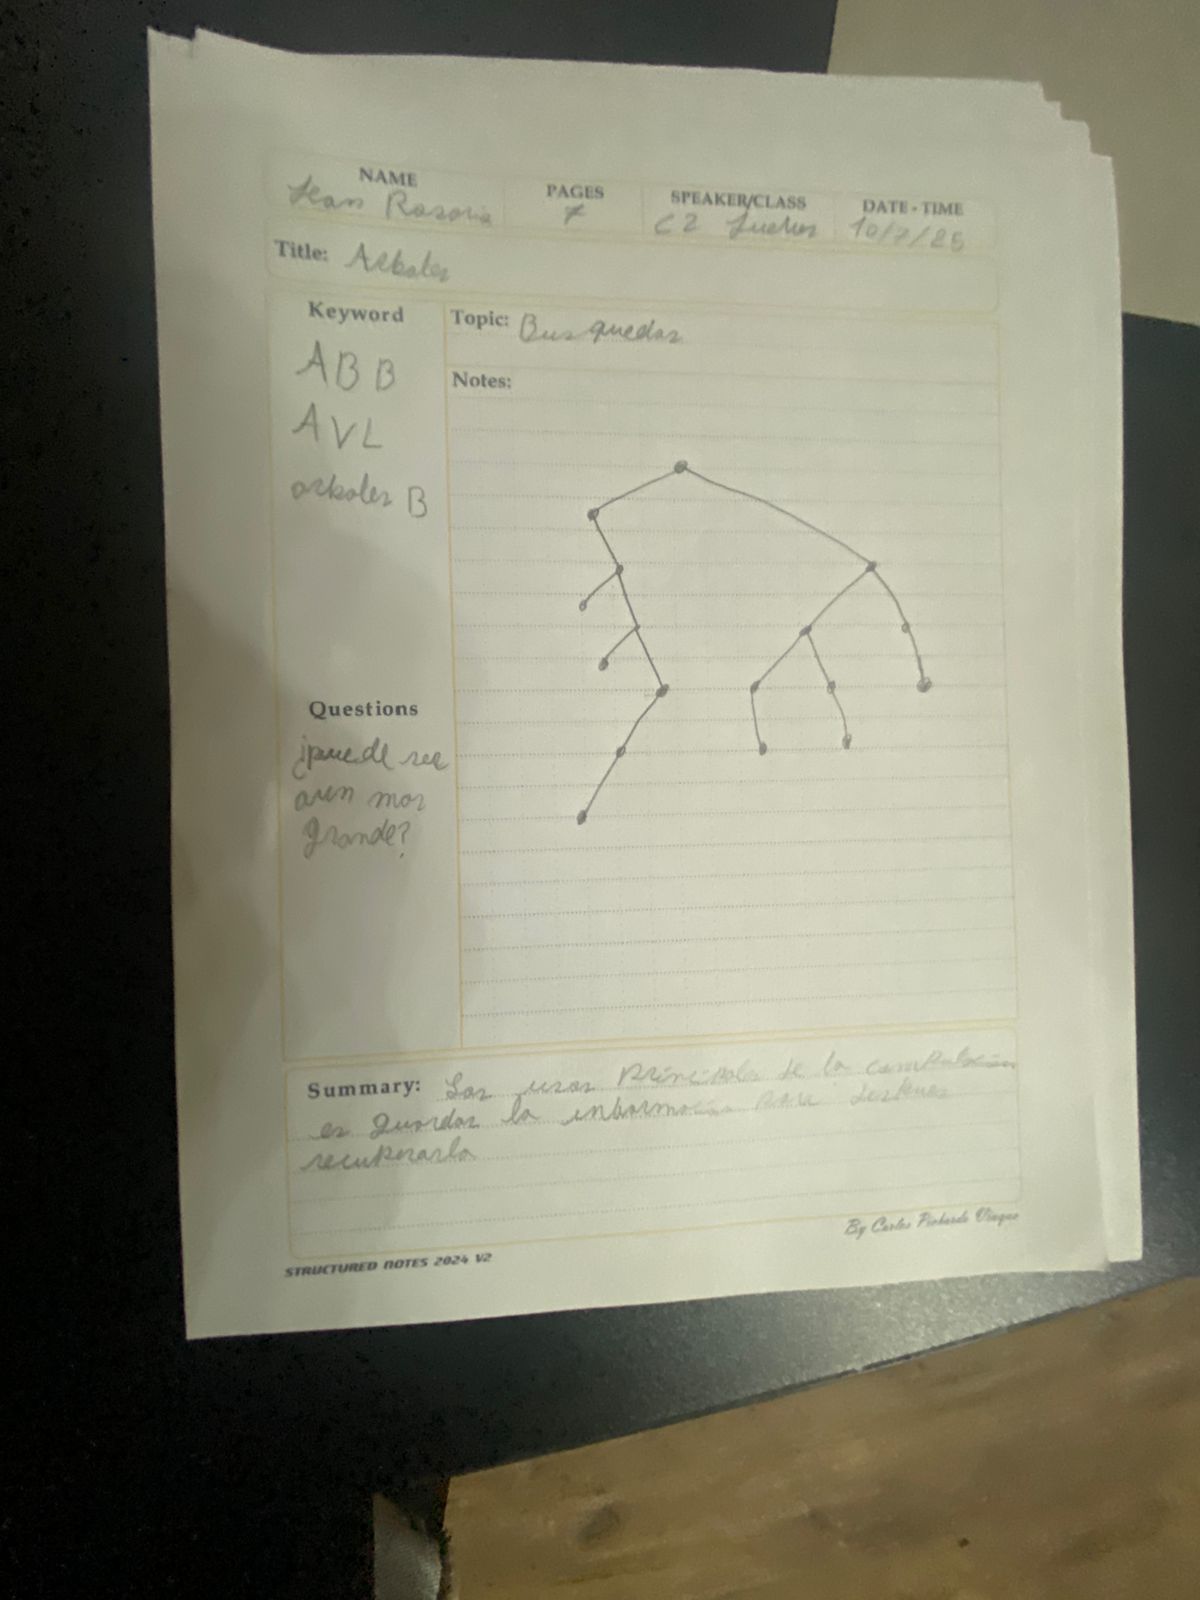 NAME
Jean Rosario
PAGES
7
SPEAKER/CLASS
C2
DATE - TIME
10/7/25
Title: Arboles
Keyword
ABB
AVL
arboles B
Topic: Busquedas
Notes:
Questions
¿puede ser
aun mas
grande?
Summary: Los usos principales de la computacion
es guardar la informacion para despues
recuperarla
By Carlos Pichardo Viuque
STRUCTURED NOTES 2024 V2